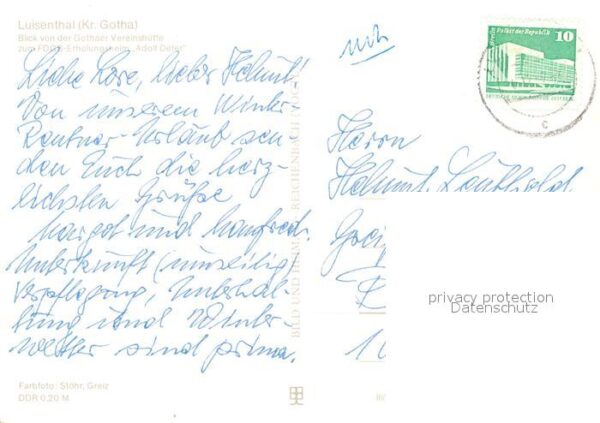 Luisenthal (Kr. Gotha)
Blick von der Gothaer Vereinshütte
zum FDGB-Erholungsheim "Adolf Deter"
Liebe Lore, lieber Helmut!
Von unserem Winter-
Rentner-Urlaub sen-
den Euch die herz-
lichsten Grüße
Margot und Manfred.
Unterkunft (unseilig)
Verpflegung, Unterhal-
tung und Winter-
wetter sind prima.
Farbfoto: Stöhr, Greiz
DDR 0,20 M
BILD UND HEIMAT REICHENBACH
Palast der Republik
10
c
Herrn
Helmut
privacy protection
Datenschutz